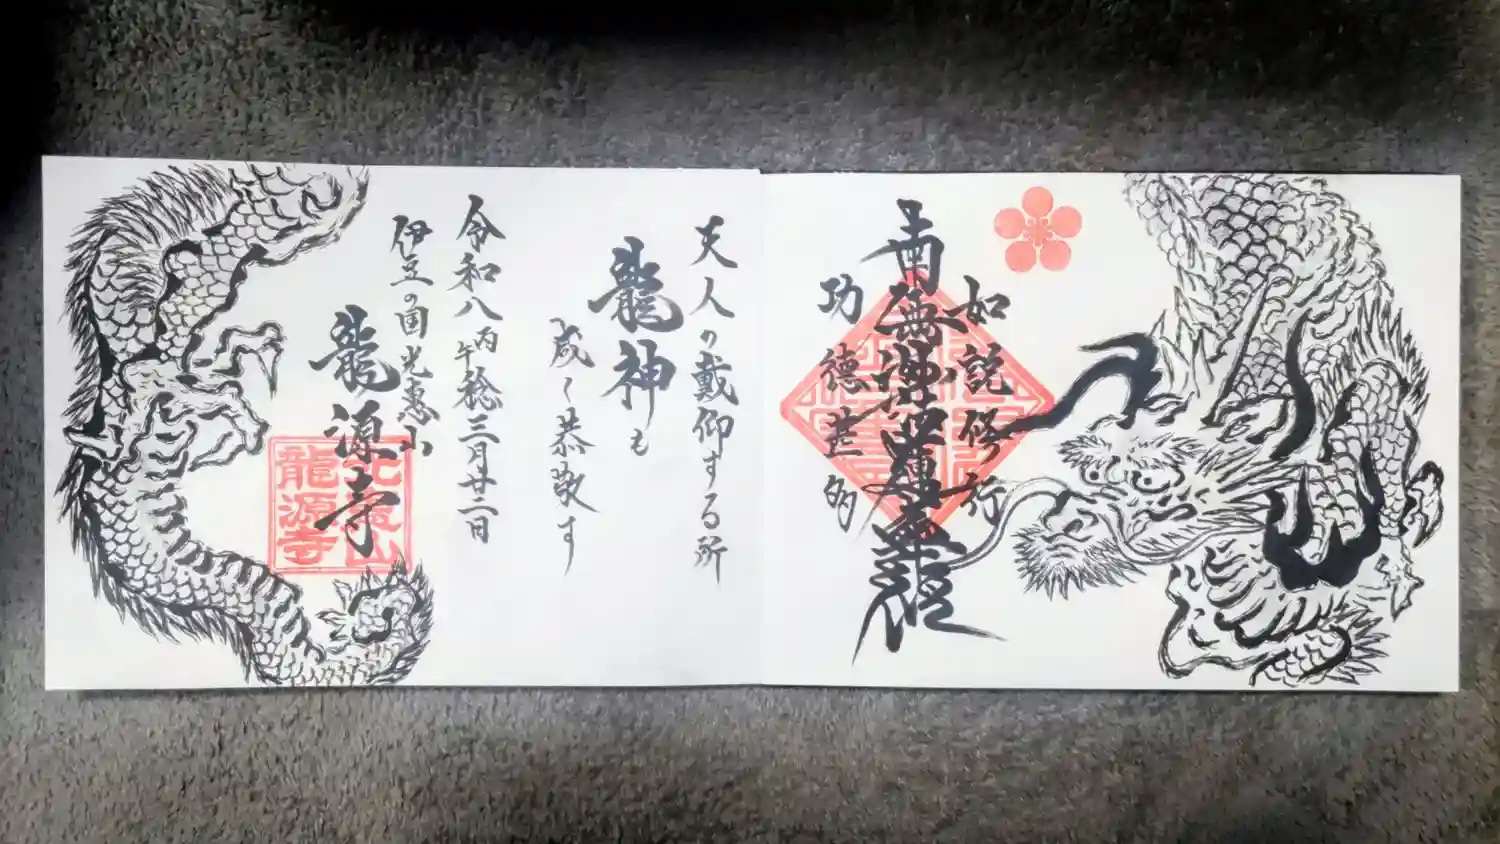 如説修行
南無妙法蓮華経
功徳甚多
天人の戴仰する所
龍神も
咸く恭敬す
令和八丙午稔三月廿二日
伊豆の国光恵山
龍源寺
光恵山
龍源寺